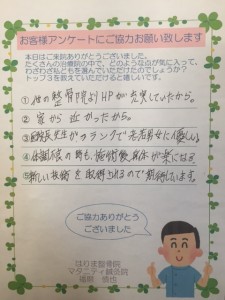 お客様アンケートにご協力お願い致します
本日はご来院ありがとうございました。
たくさんの治療院の中で、どのような点が気に入って、
わざわざ私どもを選んでいただけたのでしょうか?
トップ3を教えていただけると嬉しいです。
①他の整骨院よりHPが充実していたから。
②家から近かったから。
③先生がフランクで老若男女に優しい。
④体調不良の時も、施術後身体が楽になる。
⑤新しい技術を取得されるので期待しています。
ご協力ありがとう
ございました
はりま整骨院
マタニティ鍼灸院